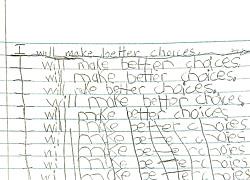 I will make better choices.
I will make better choices
I will make better choices.
I will make better choices.
I will make better choices
I will make better choices
I will make better choices
I will make better choices
I will make better choices
I will make better choices